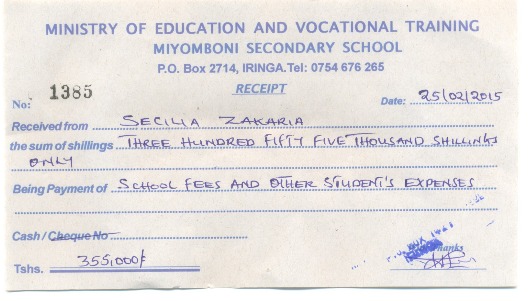 MINISTRY OF EDUCATION AND VOCATIONAL TRAINING
MIYOMBONI SECONDARY SCHOOL
P.O. Box 2714, IRINGA.Tel: 0754 676 265
RECEIPT
No: 1385 Date: 25/02/2015
Received from SECILIA ZAKARIA
the sum of shillings THREE HUNDRED FIFTY FIVE THOUSAND SHILLINGS
ONLY
Being Payment of SCHOOL FEES AND OTHER STUDENT'S EXPENSES
Cash / Cheque No
Thanks
Tshs. 355,000/